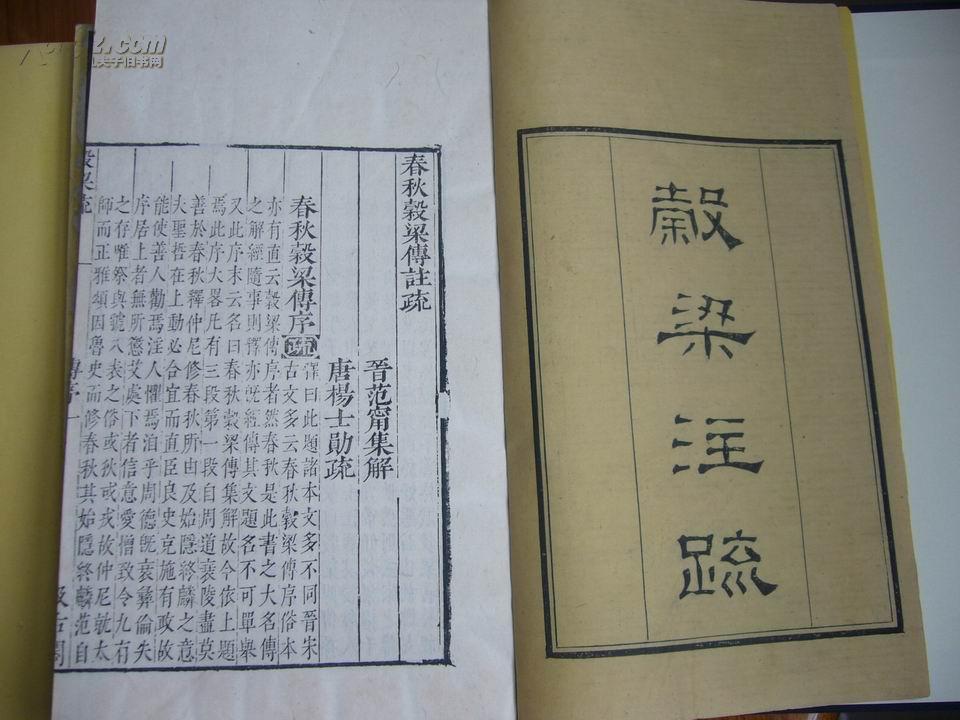 穀梁注疏
春秋穀梁傳註疏
晉范甯集解
唐楊士勛疏
春秋穀梁傳序 疏 釋曰此題諸本文多不同晉宋
古文多云春秋穀梁傳序俗本
亦有直云穀梁傳序者然春秋是此書之大名傳
之解經隨事則釋亦既經傳其文題名不可單舉
又此序末云名曰春秋穀梁傳集解故今依上題
焉此序大畧凡有三段第一段自周道衰陵盡莫
善於春秋釋仲尼修春秋所由及始隱終麟之意
夫聖哲在上動必合宜而直臣良史克施有政故
能使善人勸焉淫人懼焉洎乎周德既衰彝倫失
序居上者無所懲艾處下者信意愛憎致令九有
之存唯祭與號八表之俗或狄或戎故仲尼就太
師而正雅頌因魯史而修春秋其始隱終麟范自
穀梁疏 傳序 一 汲古閣
.com
夫子旧书网